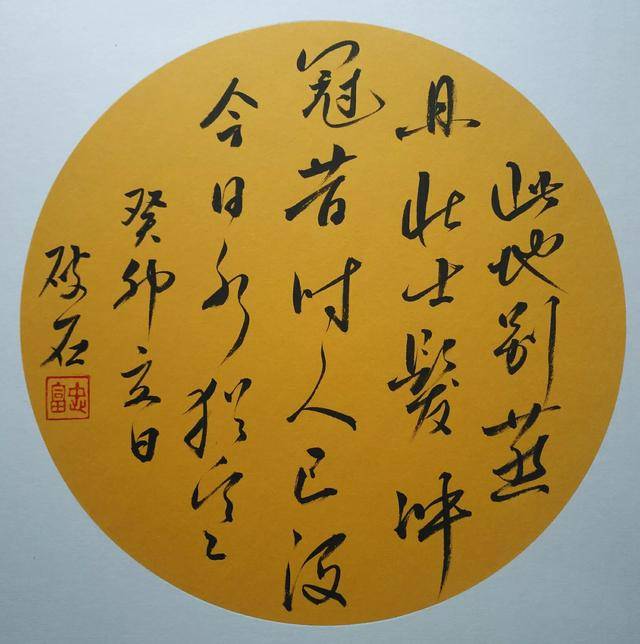 此地别燕
丹壮士髮冲
冠昔时人已没
今日水犹寒
癸卯日
破石
忠富